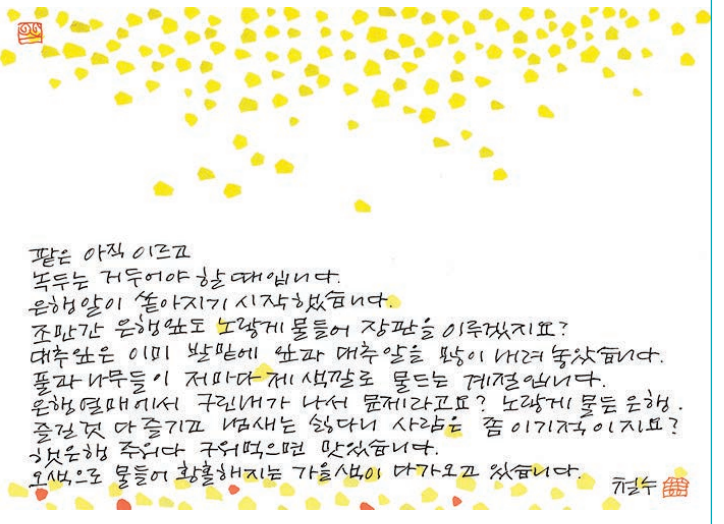 팥은 아직 이르고
녹두는 거두어야 할 때입니다.
은행알이 쏟아지기 시작했습니다.
조만간 은행잎도 노랗게 물들어 장판을 이루겠지요?
대추잎은 이미 발밑에 잎과 대추알을 많이 내려 놓았습니다.
풀과 나무들이 저마다 제 색깔로 물드는 계절입니다.
은행열매에서 구린내가 나서 문제라고요? 노랗게 물든 은행.
즐길 것 다 즐기고 냄새는 싫다니 사람은 좀 이기적이지요?
햇은행 주워다 구워먹으면 맛있습니다.
오색으로 물들어 황홀해지는 가을색이 다가오고 있습니다.
철수